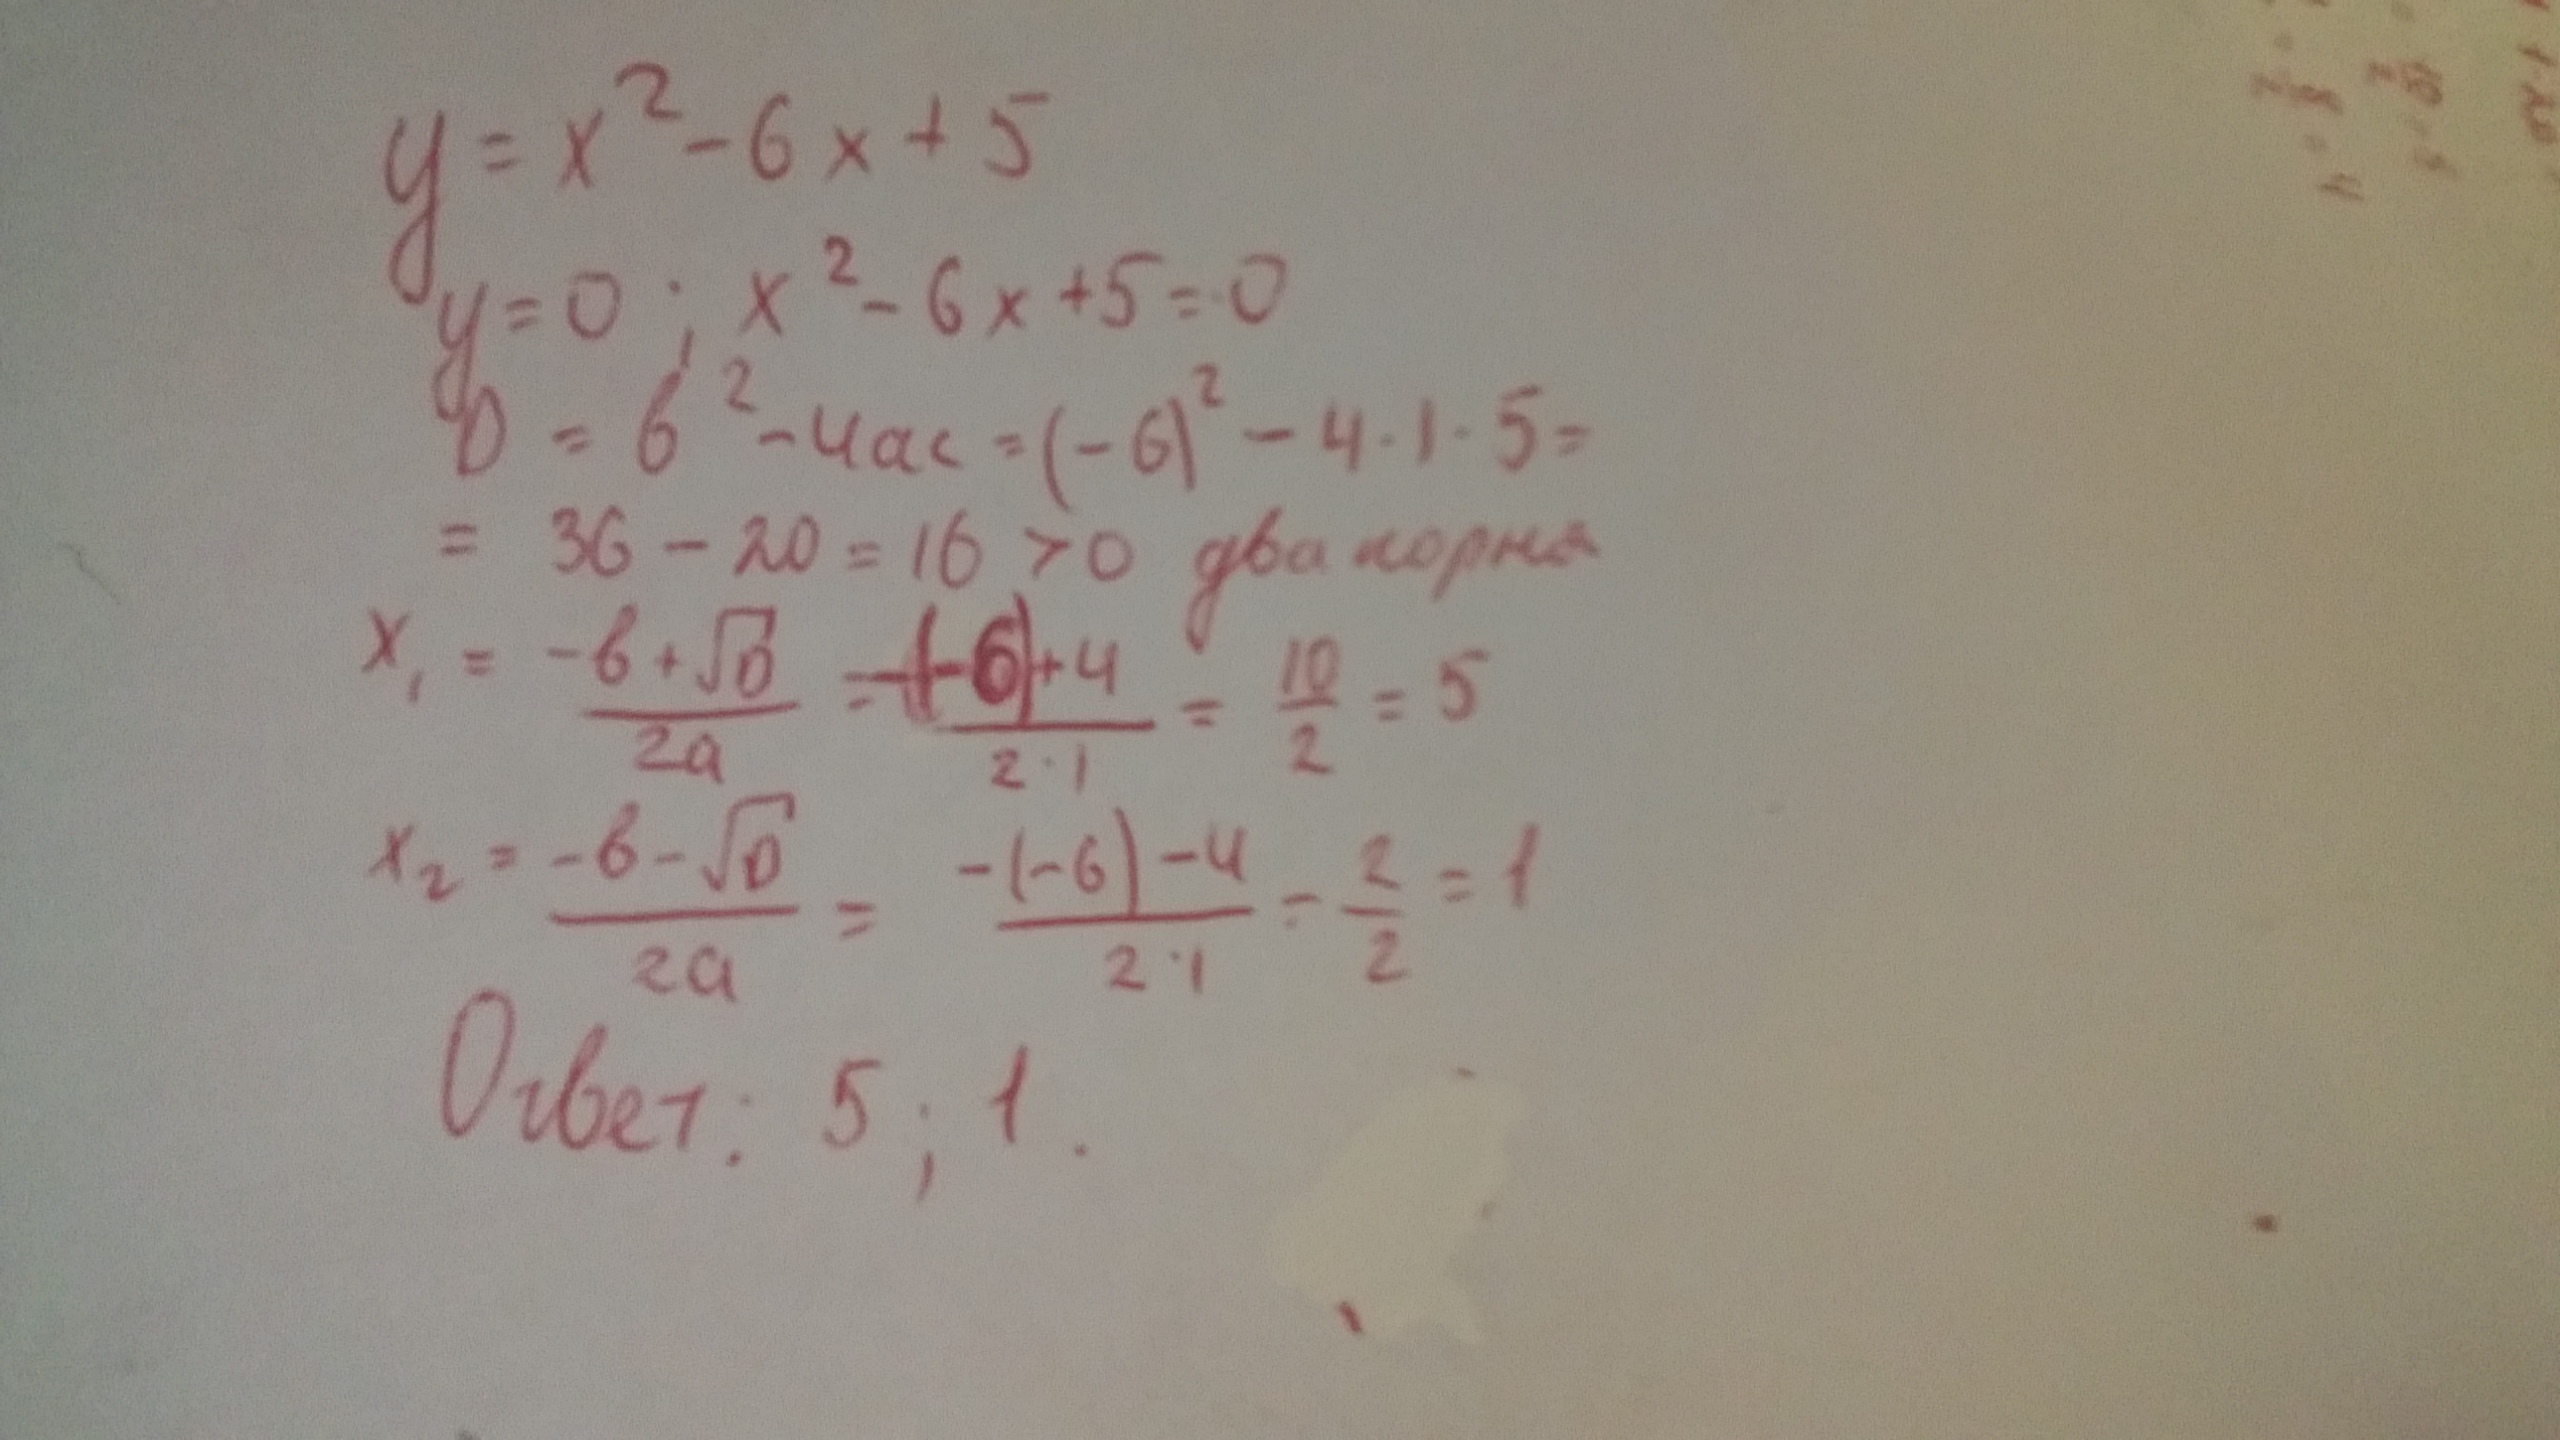 y = x² - 6x + 5
y = 0 ; x² - 6x + 5 = 0
D = b² - 4ac = (-6)² - 4·1·5 =
= 36 - 20 = 16 > 0 два корня
x₁ = (-b + √D)/(2a) = (-(-6) + 4)/(2·1) = 10/2 = 5
x₂ = (-b - √D)/(2a) = (-(-6) - 4)/(2·1) = 2/2 = 1
Ответ: 5 ; 1.